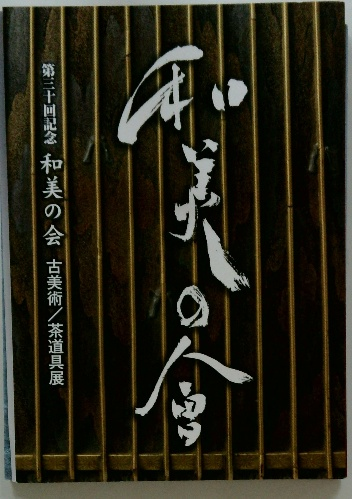 和美の會
第三十回記念 和美の会 古美術/茶道具展